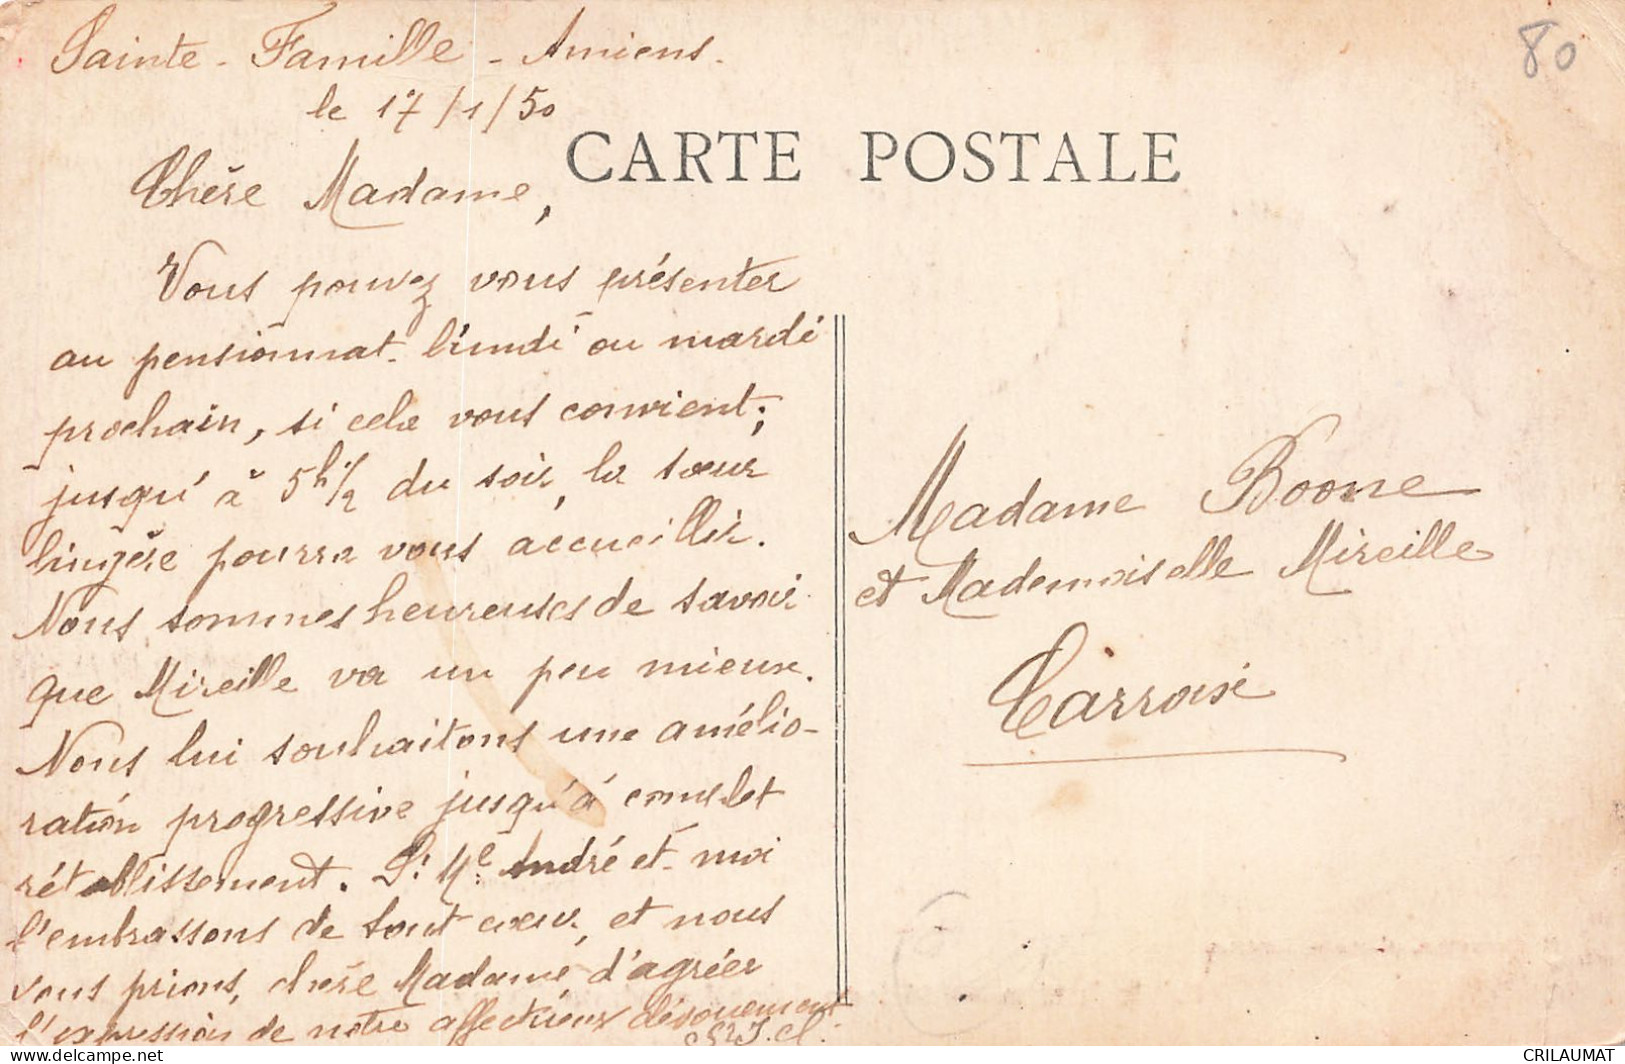 Sainte - Famille - Amiens.
80
le 17/1/50
CARTE POSTALE
Chère Madame,
Vous pouvez vous présenter
au pensionnat lundi ou mardi
prochain, si cela vous convient;
jusqu'à 5h 1/2 du soir, la sœur
lingère pourra vous accueillir.
Nous sommes heureuses de savoir
que Mireille va un peu mieux.
Nous lui souhaitons une amélio-
ration progressive jusqu'à complet
rétablissement. Sr Me André et moi
l'embrassons de tout cœur, et nous
vous prions, chère Madame, d'agréer
l'expression de notre affectueux dévouement
Madame Boone
et Mademoiselle Mireille
CRILAUMAT